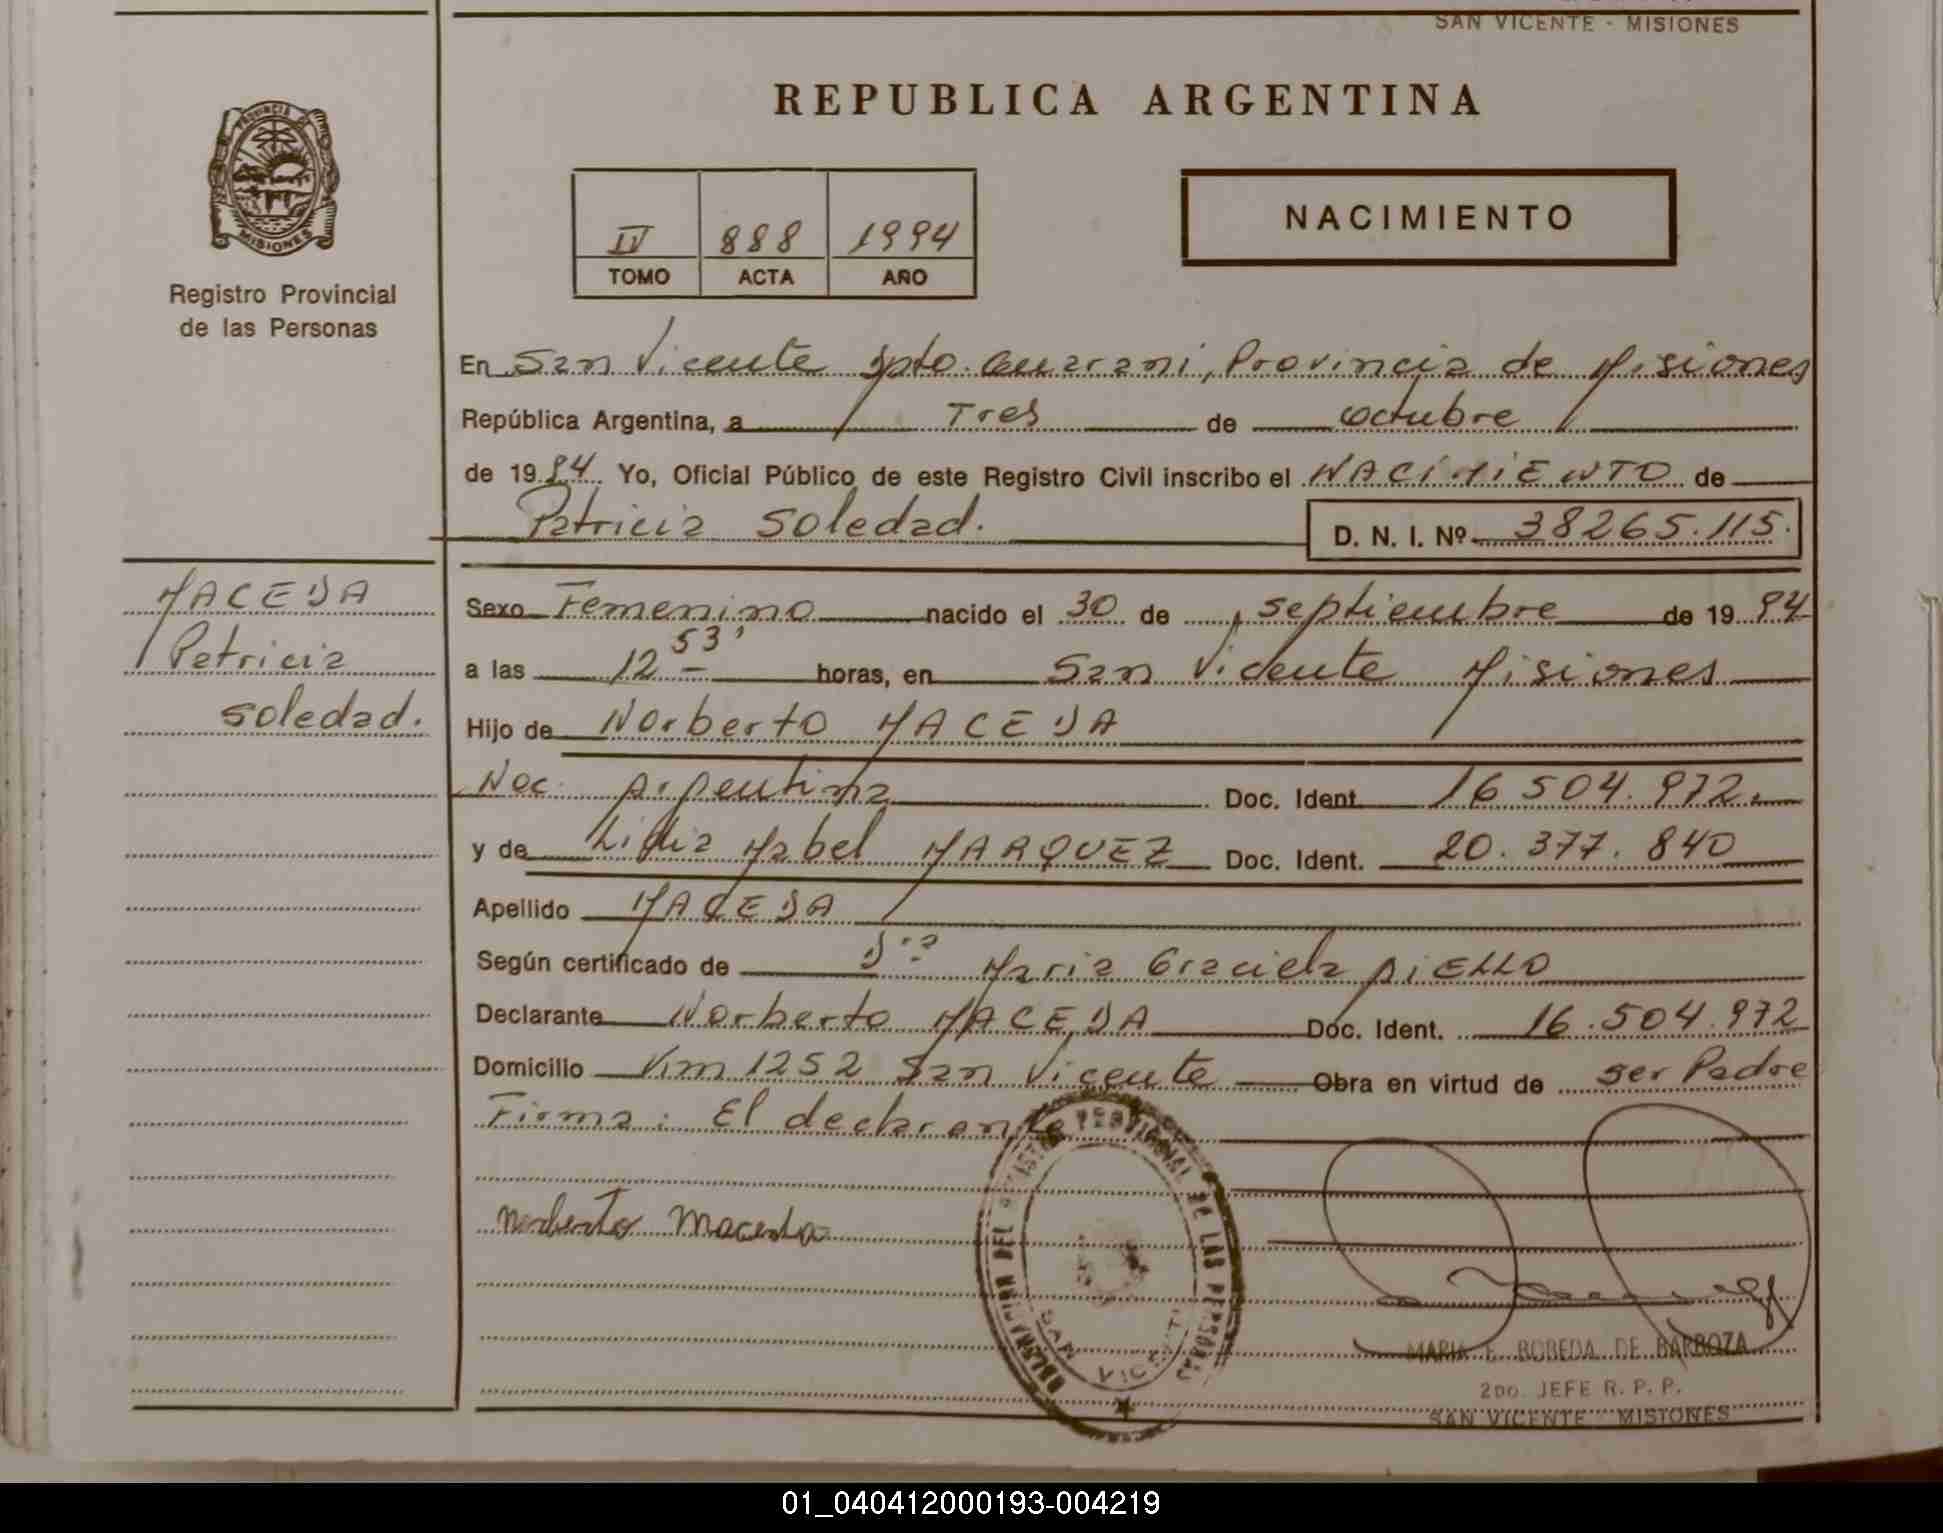 SAN VICENTE - MISIONES
REPUBLICA ARGENTINA
PROVINCIA DE
MISIONES
Registro Provincial
de las Personas
IV 888 1994
TOMO ACTA AÑO
NACIMIENTO
En San Vicente Dpto. Guarani, Provincia de Misiones
República Argentina, a Tres de Octubre
de 1994 Yo, Oficial Público de este Registro Civil inscribo el NACIMIENTO de
Patricia Soledad. D. N. I. Nº 38265.115.
MACEDA
Patricia
Soledad.
Sexo Femenino nacido el 30 de septiembre de 1994
a las 12 53' horas, en San Vicente Misiones
Hijo de Norberto MACEDA
Nac. Argentina Doc. Ident. 16.504.972.
y de Lidia Mabel MARQUEZ Doc. Ident. 20.377.840
Apellido MACEDA
Según certificado de Dra Maria Graciela AiELLO
Declarante Norberto MACEDA Doc. Ident. 16.504.972
Domicilio Km 1252 San Vicente Obra en virtud de ser Padre
Firma: El declarante
Norberto Maceda
DELEGACION DEL REGISTRO PROVINCIAL DE LAS PERSONAS
SAN VICENTE
MARIA E. BOBEDA DE BARBOZA
2DO. JEFE R. P. P.
SAN VICENTE MISIONES
01_040412000193-004219